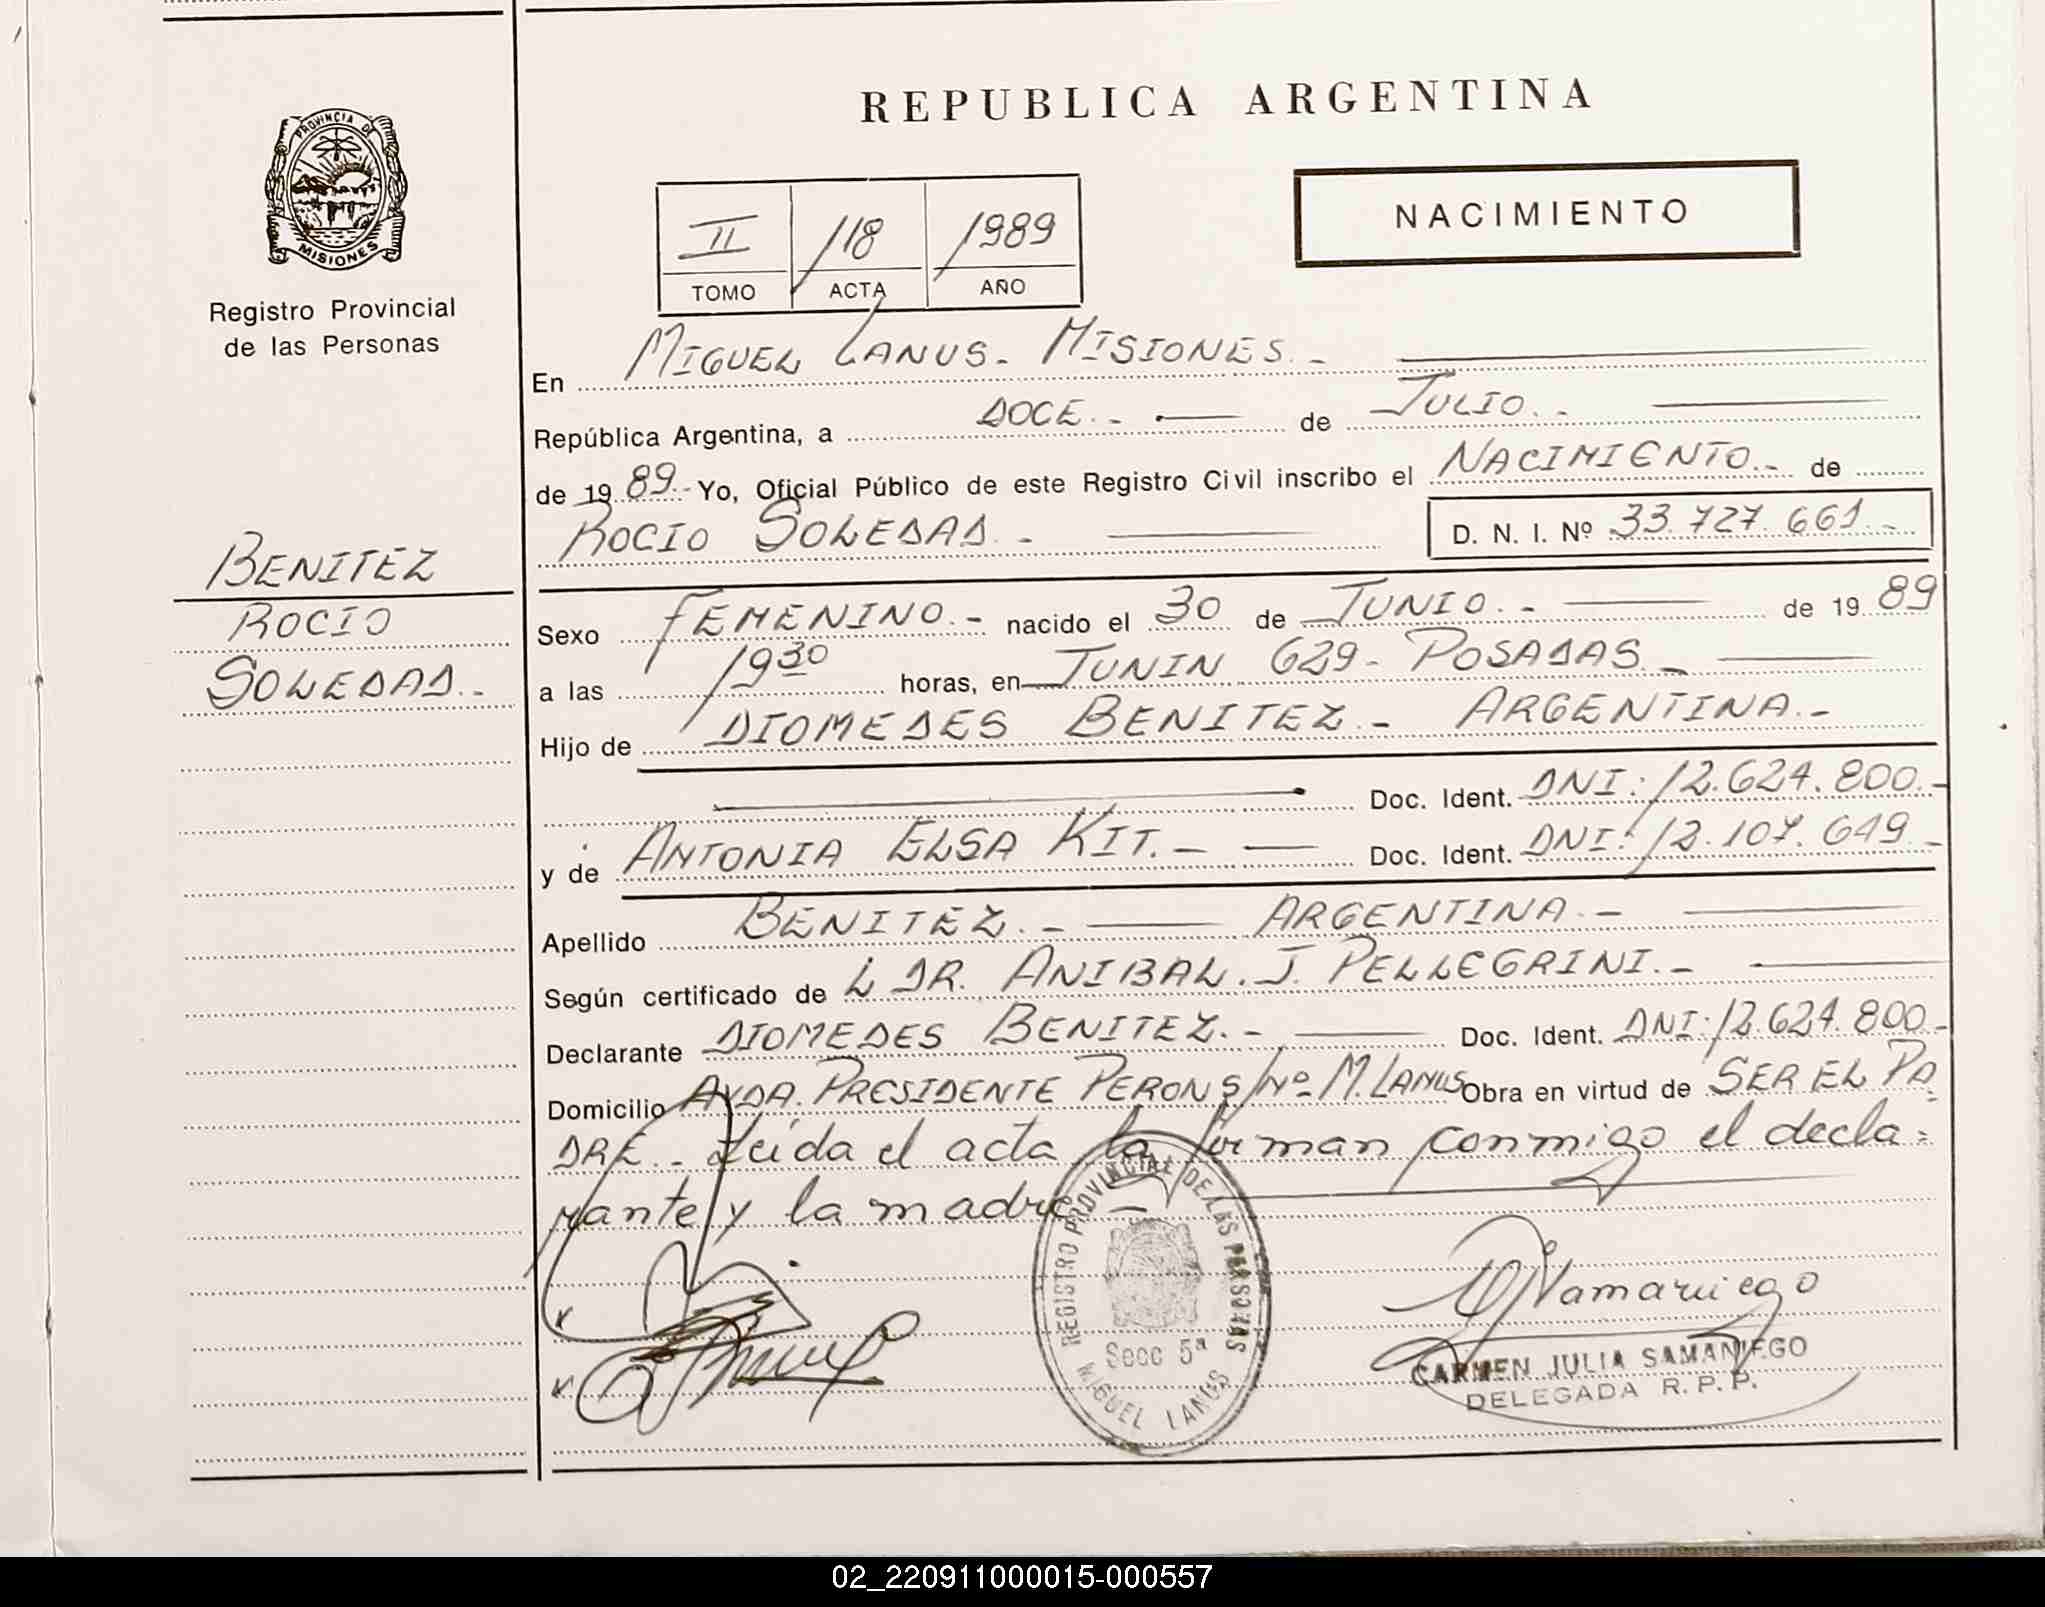 PROVINCIA DE
MISIONES
Registro Provincial
de las Personas
BENITEZ
ROCIO
SOLEDAD.-
REPUBLICA ARGENTINA
NACIMIENTO
II 118 1989
TOMO ACTA AÑO
En MIGUEL LANUS.- MISIONES.-
República Argentina, a DOCE.- de JULIO.-
de 19 89.- Yo, Oficial Público de este Registro Civil inscribo el NACIMIENTO.- de
ROCIO SOLEDAD.- D. N. I. Nº 33.727.661.-
Sexo FEMENINO.- nacido el 30 de JUNIO.- de 19 89
a las 19 30 horas, en JUNIN 629- POSADAS.-
Hijo de DIOMEDES BENITEZ.- ARGENTINA.-
Doc. Ident. DNI: 12.624.800.-
y de ANTONIA ELSA KIT.- Doc. Ident. DNI: 12.107.649.-
Apellido BENITEZ.- ARGENTINA.-
Según certificado de L DR. ANIBAL. J. PELLEGRINI.-
Declarante DIOMEDES BENITEZ.- Doc. Ident. DNI: 12.624.800.-
Domicilio AVDA. PRESIDENTE PERON S/Nº M. LANUS Obra en virtud de SER EL PA
DRE.- Leida el acta la firman conmigo el decla=
rante y la madre.-
REGISTRO PROVINCIAL DE LAS PERSONAS
Secc 5ª
MIGUEL LANUS
CARMEN JULIA SAMANIEGO
DELEGADA R. P. P.
02_220911000015-000557